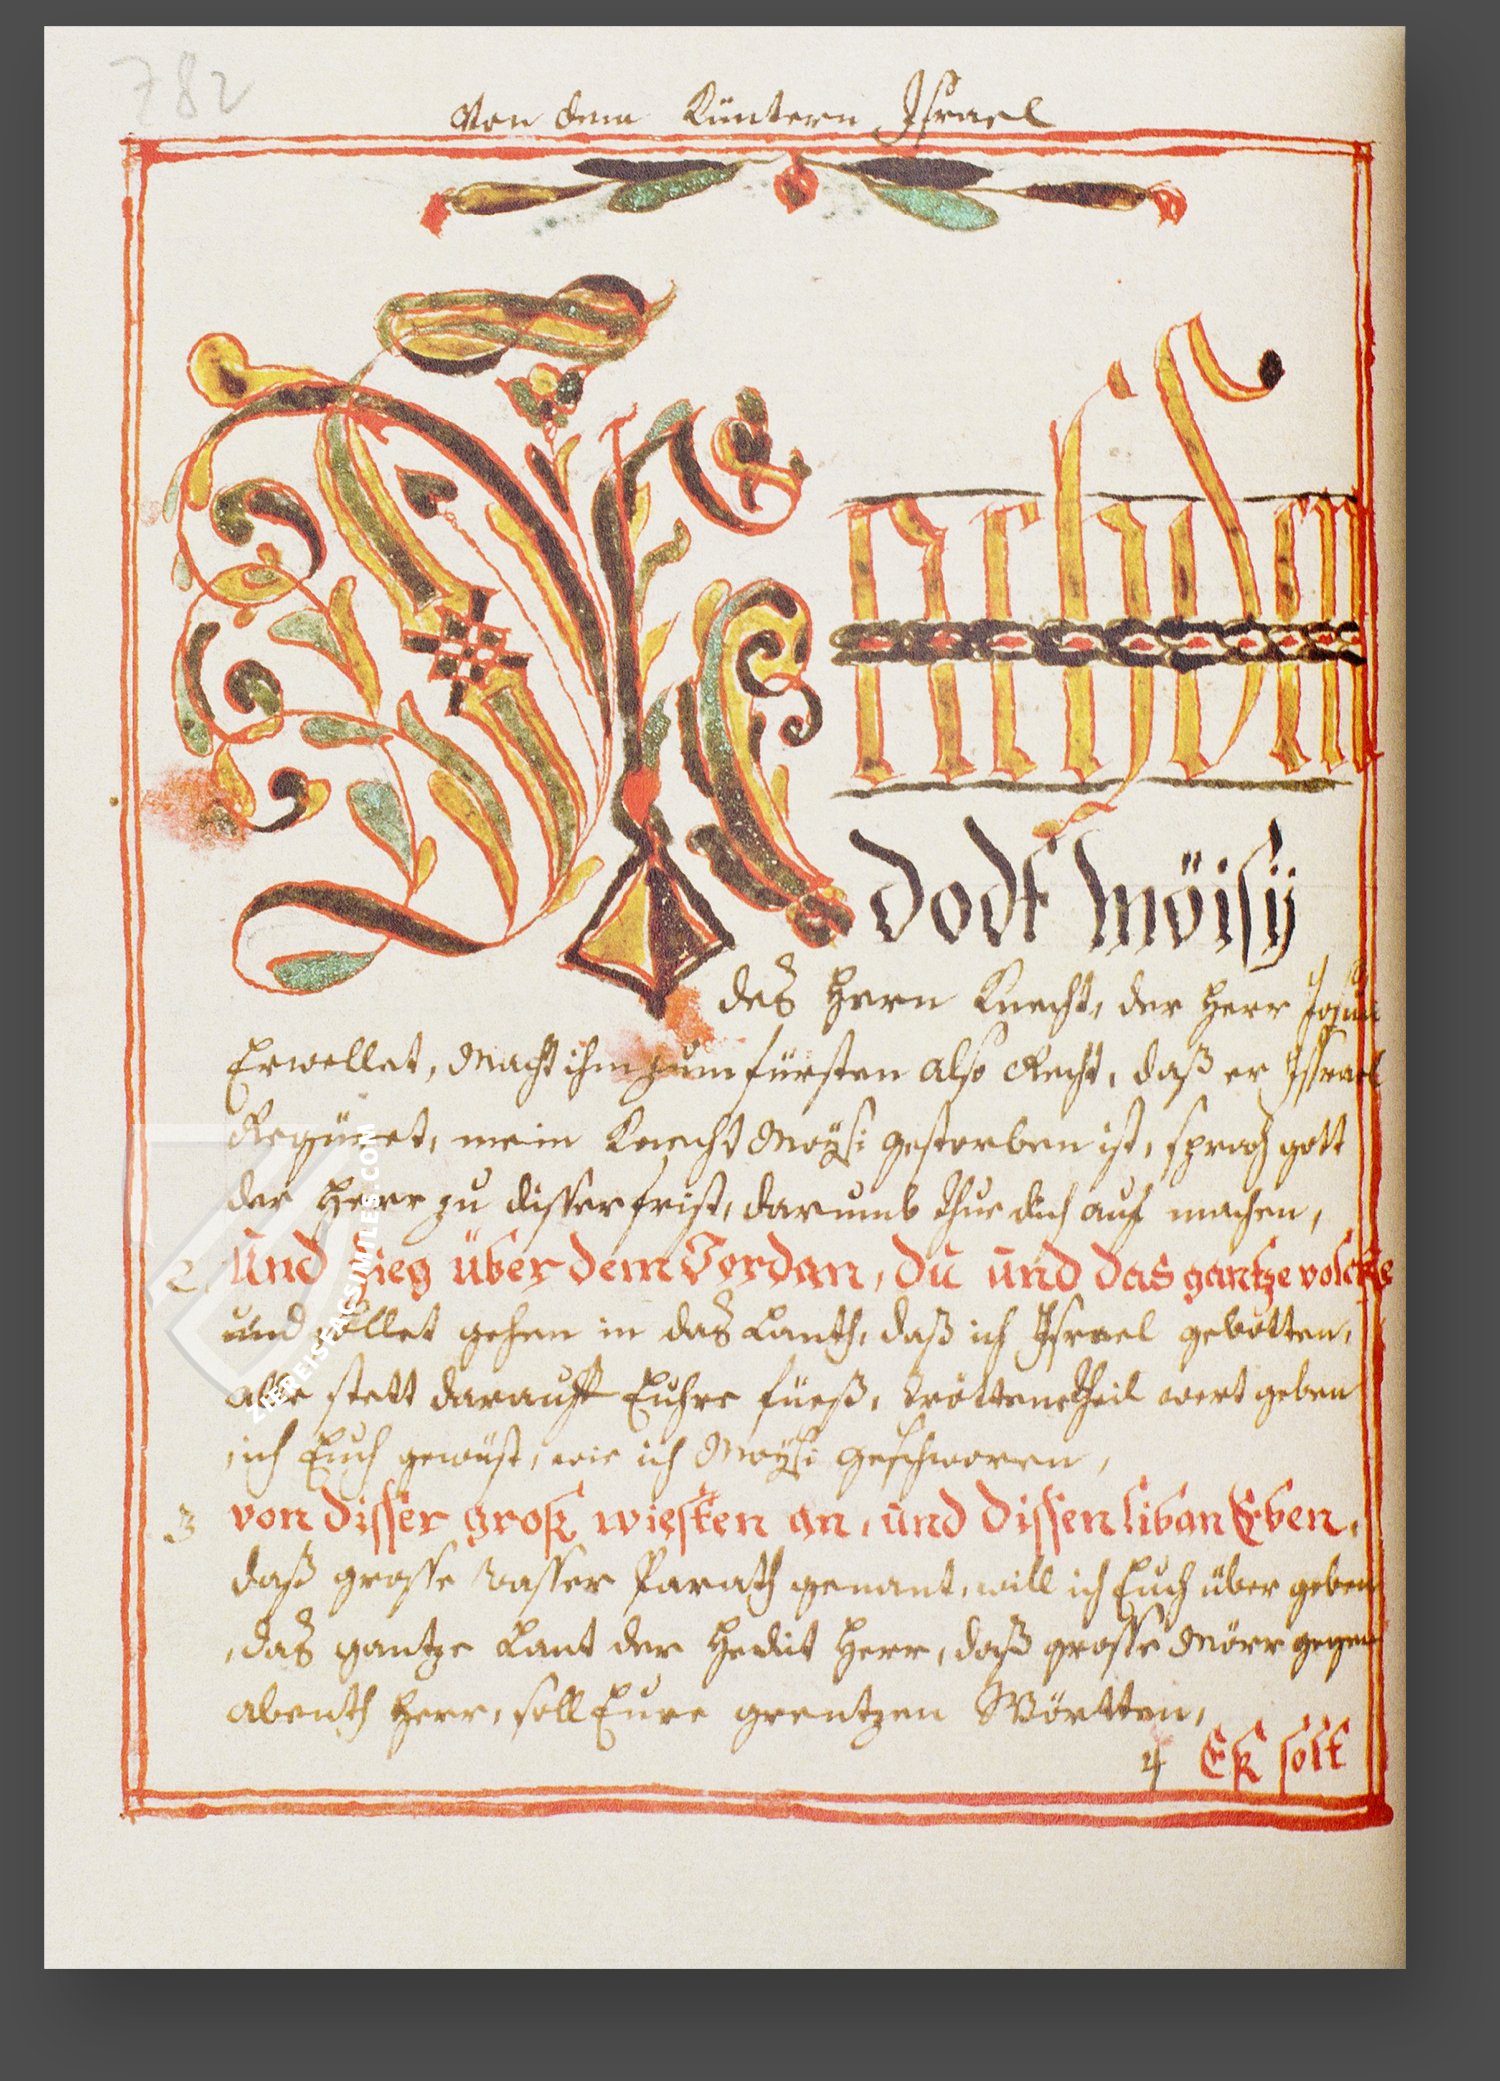 782
Von dem Küntern Israel
Nach den
dodt Möisÿ
deß Herrn Knecht, der Herr Josua
Erwellet, Macht ihm zum fürsten also Recht, daß er Issrael
Regüret, mein Knecht Moÿsi gestorben ist, sprach gott
der Herr zu disser frist, darumb thue dich auf machen,
2. Und zieg über dem Jordan, du und das gantze volck
und sollet gehen in daß Lanth, daß ich Israel gebotten,
alle stett darauff Euhre füeß, wert geben
ich Euch gewüst, wie ich Moÿsi geschworen,
3 von disser groß wiesten an, und dissen liban Eben,
daß grosse wasser Parath genant, will ich Euch über geben
, daß gantze Lant der Hedit Herr, daß grosse Mörr gegen
abenth Herr, soll Eure grentzen Wörtten,
4 Eß solt
ZIEREISFACSIMILES.COM